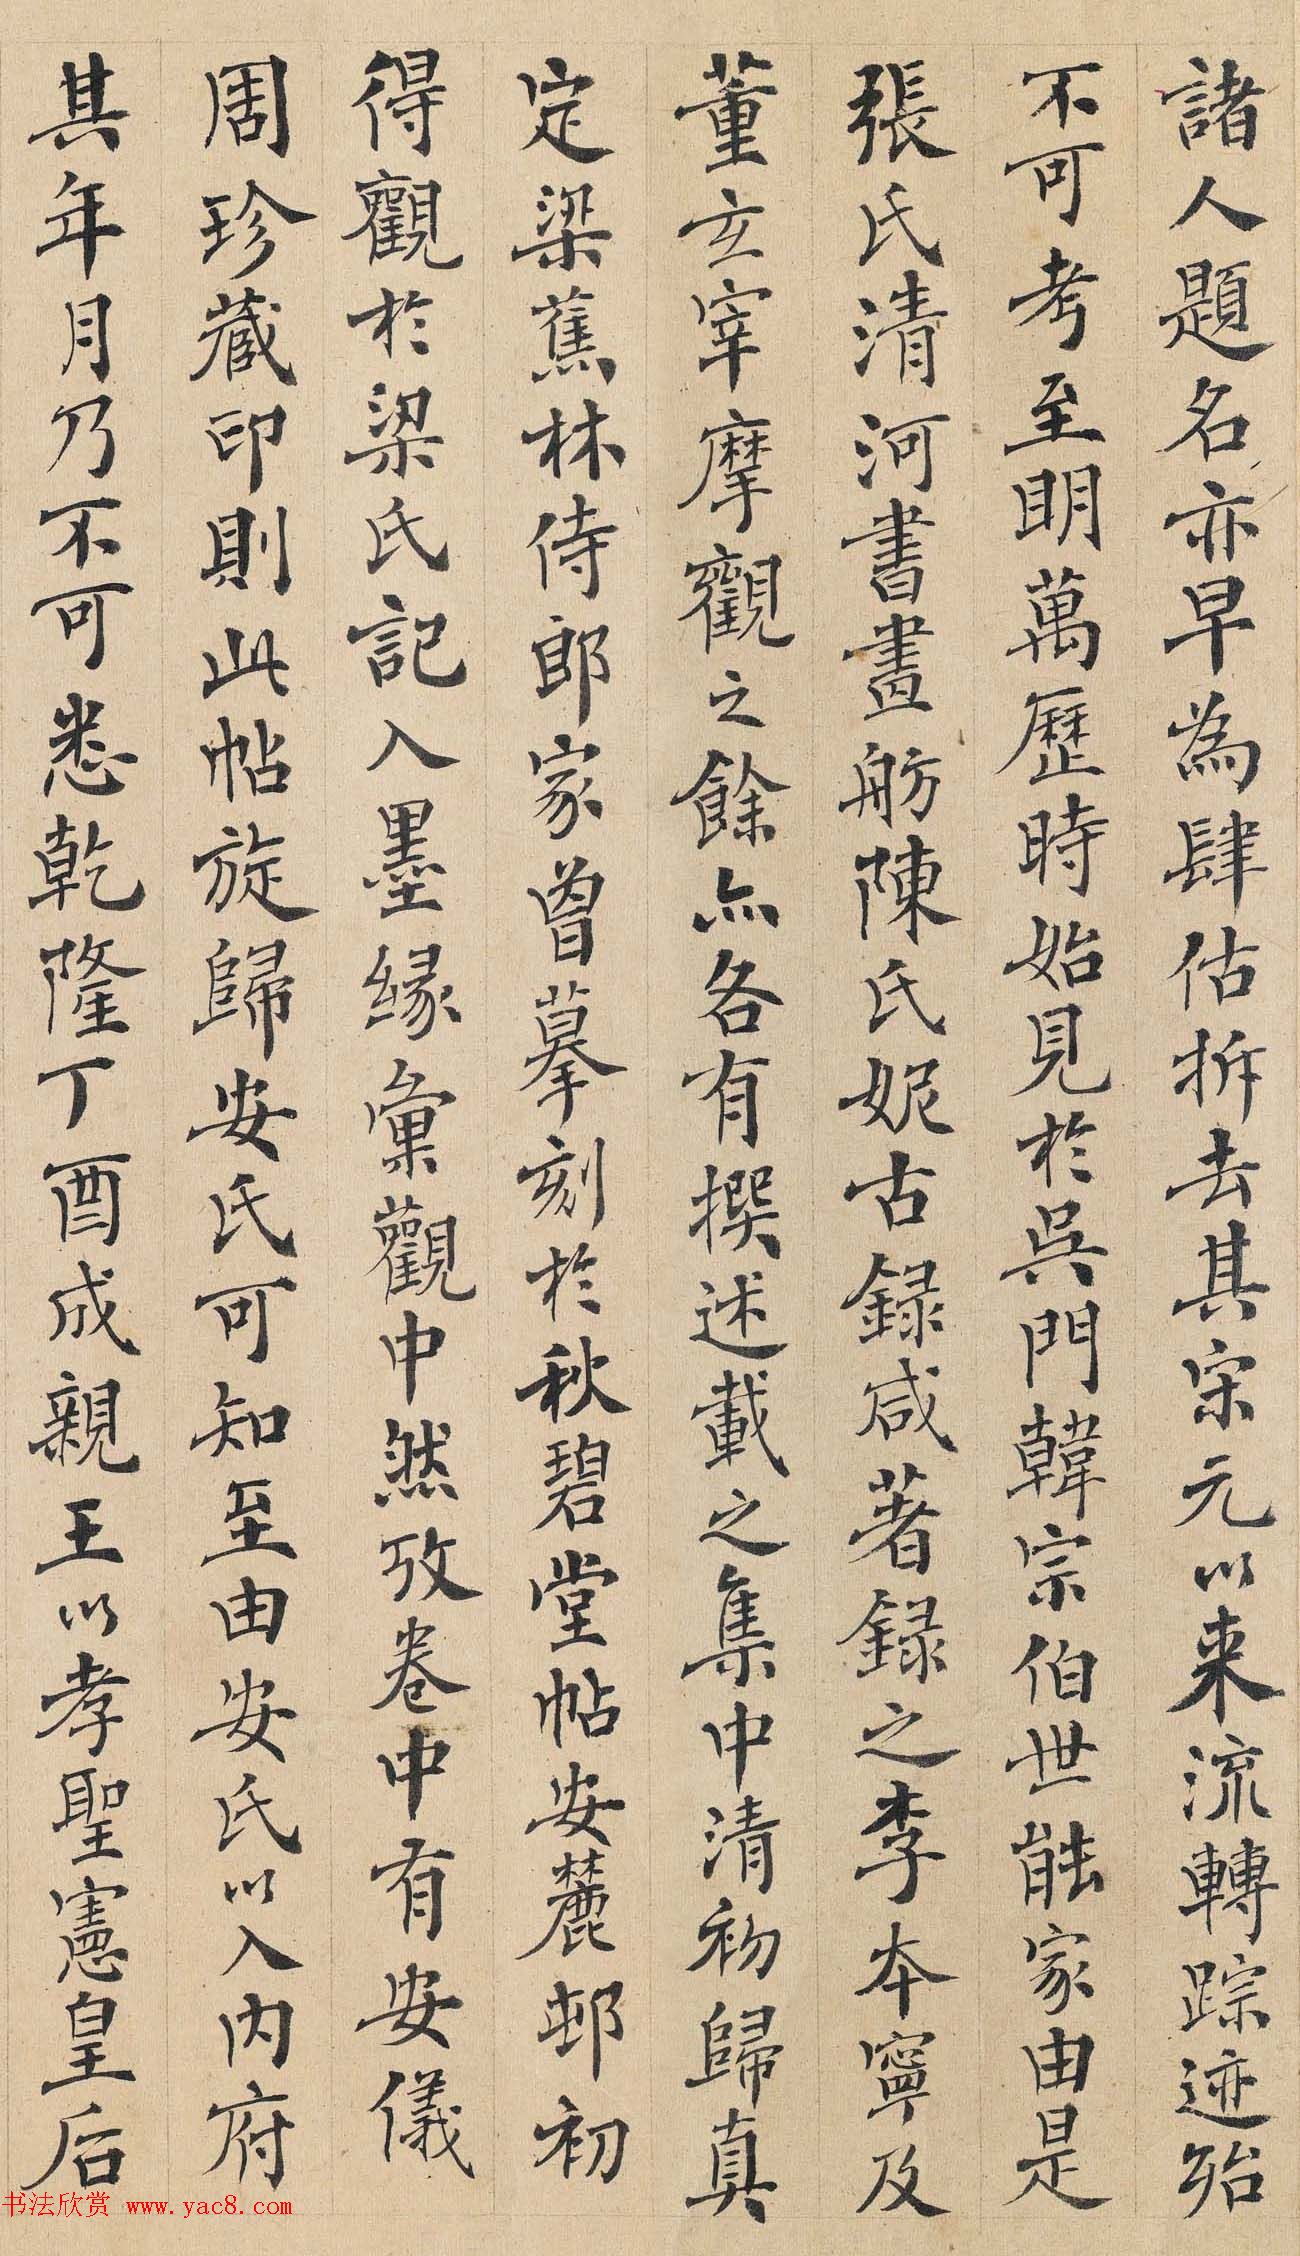 諸人題名亦早為肆估拆去其宋元以來流轉踪迹殆
不可考至明萬歷時始見於吳門韓宗伯世能家由是
張氏清河書畫舫陳氏妮古録咸著録之李本寧及
董玄宰摩觀之餘亦各有撰述載之集中清初歸真
定梁蕉林侍郎家曾摹刻於秋碧堂帖安麓邨初
得觀於梁氏記入墨緣彙觀中然攷卷中有安儀
周珍藏印則此帖旋歸安氏可知至由安氏以入內府
其年月乃不可悉乾隆丁酉成親王以孝聖憲皇后
书法欣赏 www.yac8.com